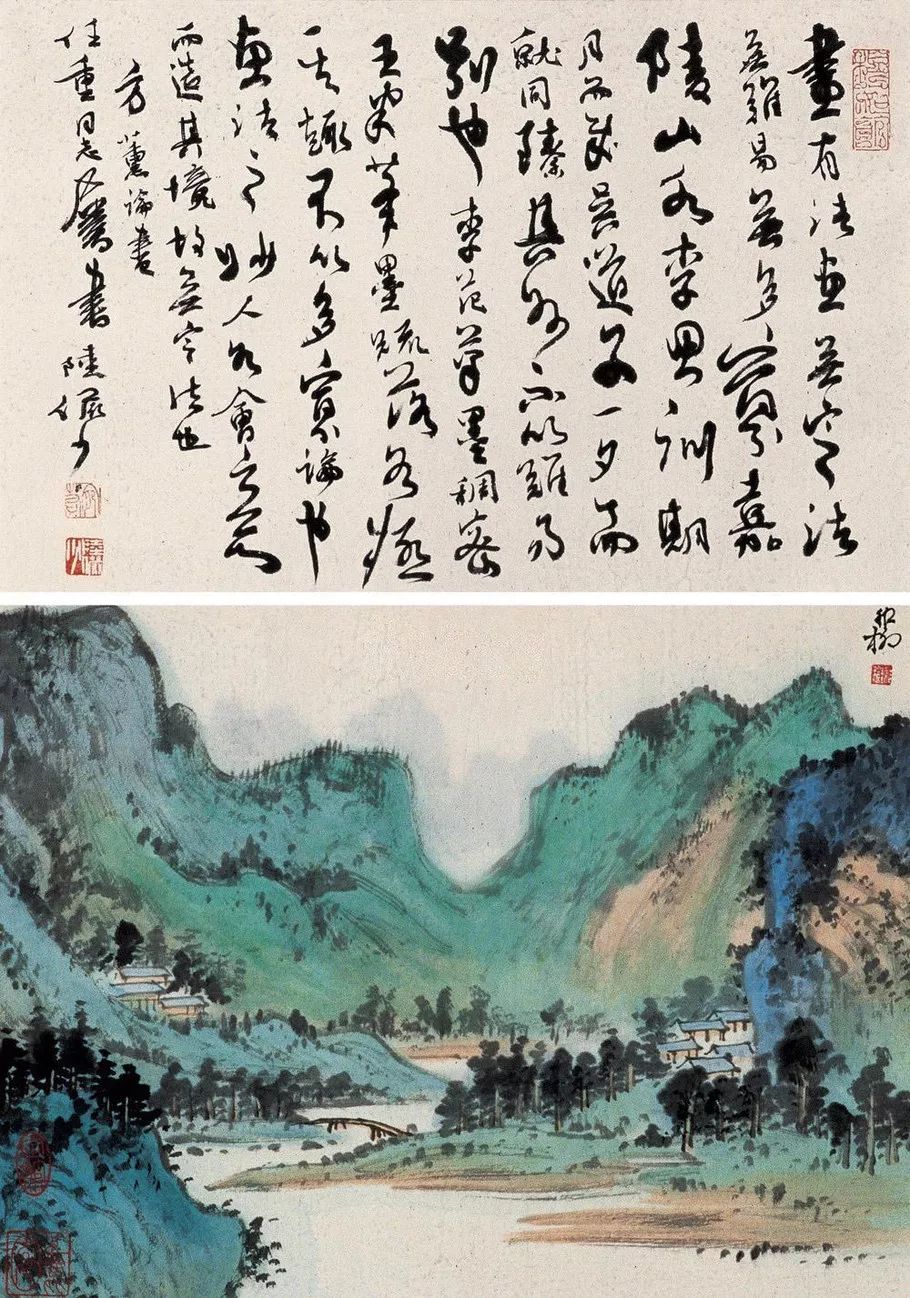 畫有法畫無定法
無難易無多寡嘉
陵山水李思訓期
月而成吳道子一夕而
就同臻其妙不以難易
別也李范筆墨稠密
王米筆墨疏落各極
其趣不以多寡論也
畫法之妙人各會意
而造其境故無定法也
方薰論畫
任重同志屬書 陸儼少
稚柳